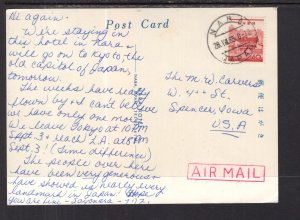 Hi again -
Post Card
We're staying in
this hotel in Nara -
will go on to Kyoto, the
old capital of Japan,
tomorrow.
The weeks have really
flown by & I can't believe
we have only one more.
We leave Tokyo at 10 PM
Sept. 3 & reach L.A. at
Sept. 3! (Time difference)
The people over here
have been very generous &
have showed us nearly every
landmark in Japan.
- Sayonara -
NARA
The M. W. Carvers
W. 4th St.
Spencer, Iowa
U.S.A.
AIR MAIL